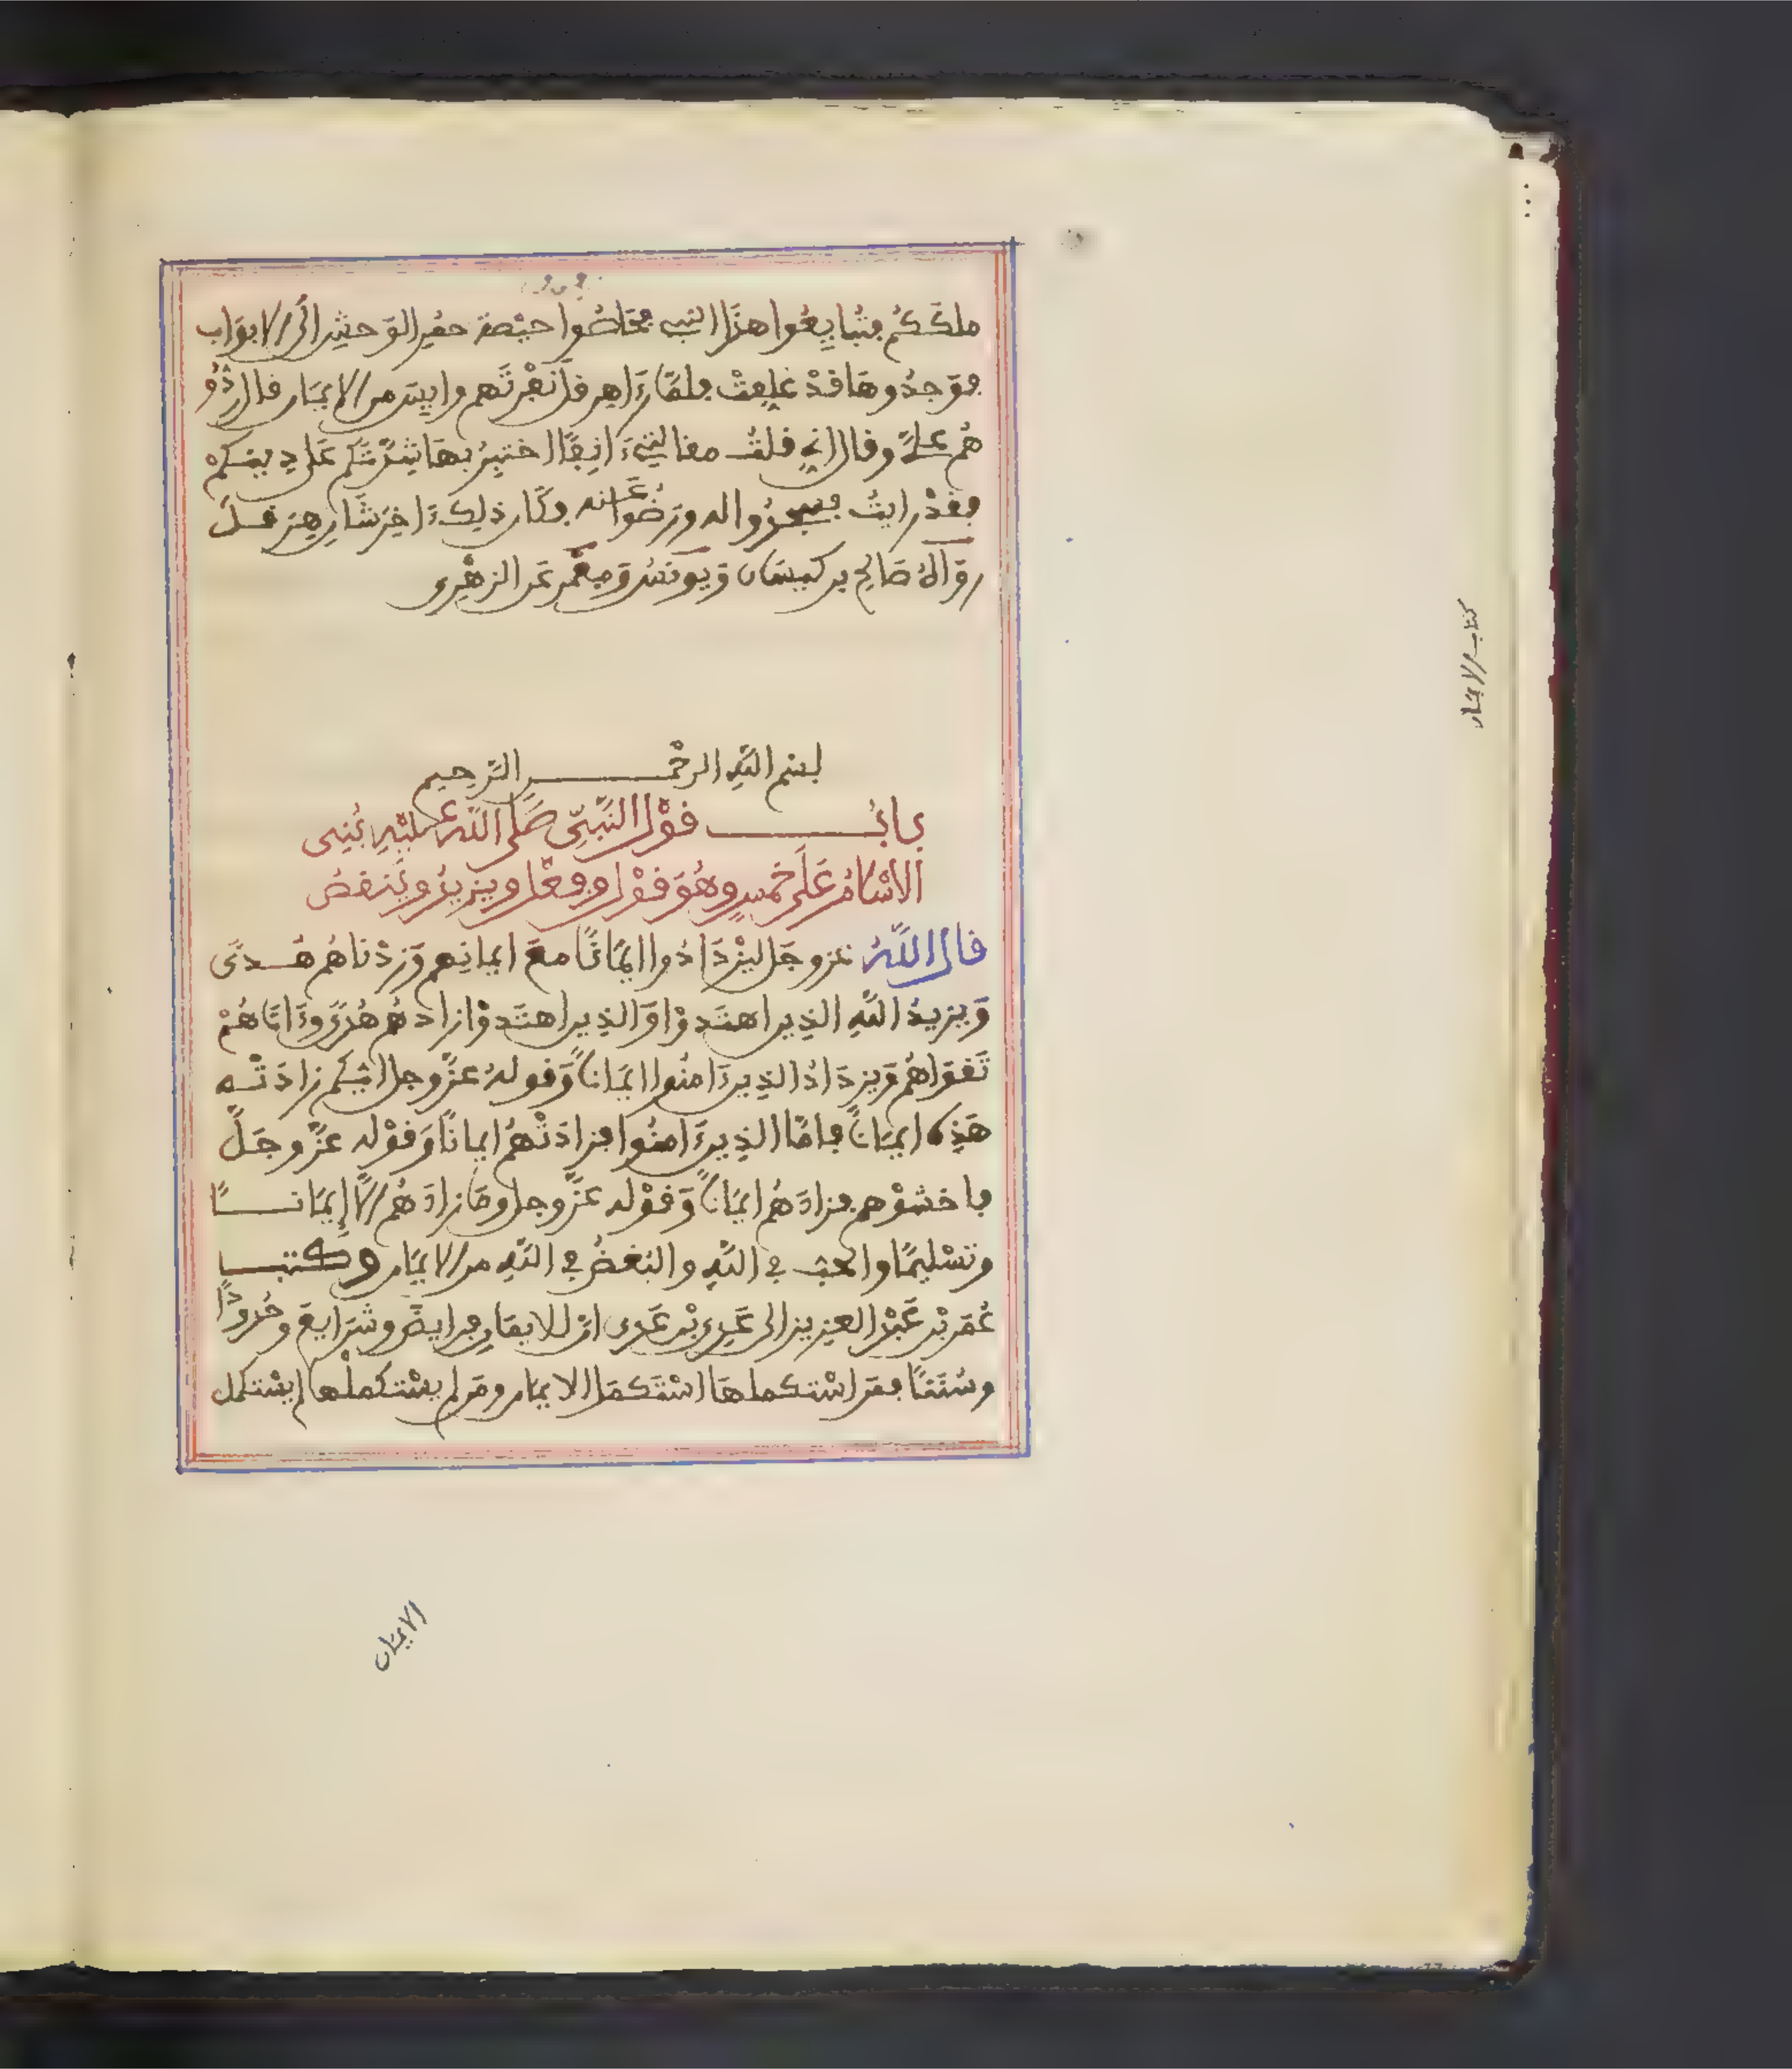 ملككم فتبايعوا هذا النبي فحاصوا حيصة حمر الوحش الى الابواب
فوجدوها قد غلقت فلما رءاهر قل نفرتهم وايس من الايمان قال ردو
هم علي وقال اني قلت مقالتي ءانفا اختبر بها شدتكم على دينكم
فقد رايت فسجدوا له ورضوا عنه فكان ذلك ءاخر شان هرقل
رواه صالح بن كيسان ويونس ومعمر عن الزهرى
بسم الله الرحمن الرحيم
باب قول النبي صلى الله عليه بني
الاسلام على خمس وهو قول وفعل ويزيد وينقص
قال الله عز وجل ليزدادوا ايمانا مع ايمانهم وزدناهم هدى
ويزيد الله الذين اهتدوا والذين اهتدوا زادهم هدى وءاتاهم
تقواهم ويزداد الذين ءامنوا ايمانا وقوله عز وجل ايكم زادته
هذه ايمانا فاما الذين ءامنوا فزادتهم ايمانا وقوله عز وجل
فاخشوهم فزادهم ايمانا وقوله عز وجل وما زادهم الا إيمانا
وتسليما والحب في الله والبغض في الله من الايمان وكتب
عمر بن عبد العزيز الى عدى بن عدى ان للايمان فرايض وشرايع وحدودا
وسننا فمن استكملها استكمل الايمان ومن لم يستكملها لم يستكمل
الايمان
كتاب الايمان